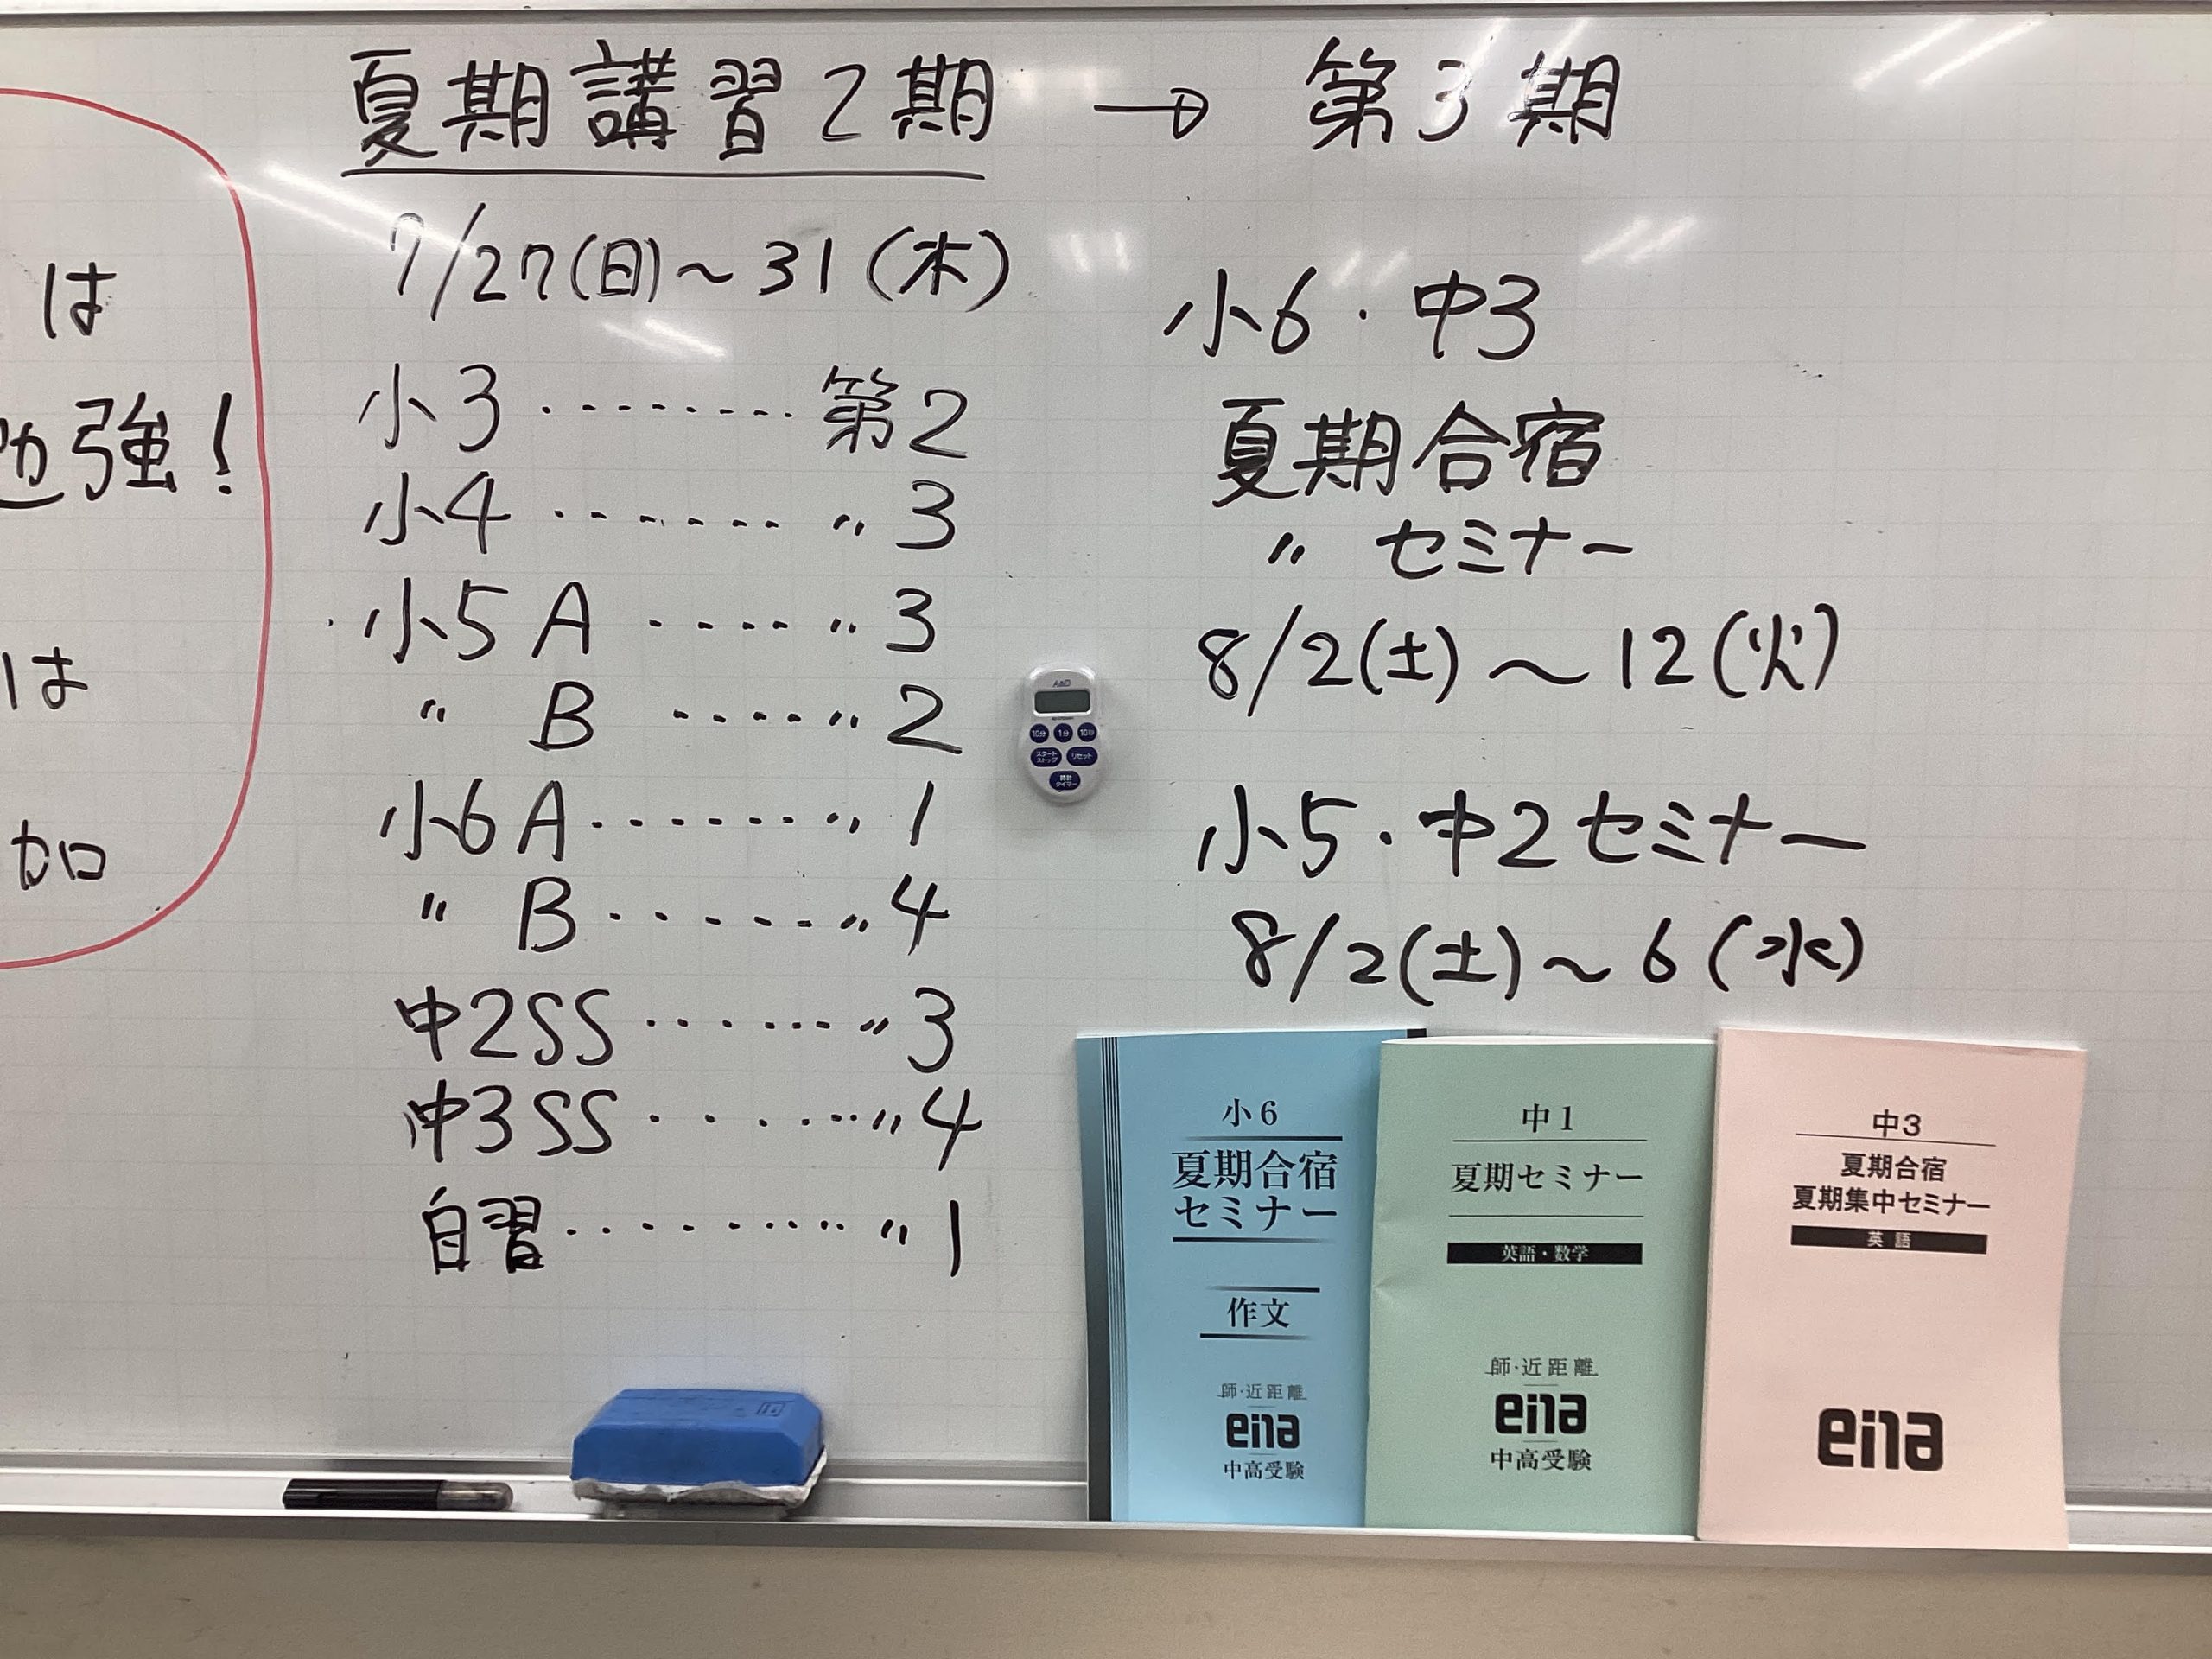 は
勉強!
は
加
夏期講習2期 → 第3期
7/27(日)~31(木)
小3・・・・・・・・第2
小4・・・・・・・〃3
小5A・・・・・〃3
〃 B・・・・・〃2
小6A・・・・・・・〃1
〃 B・・・・・・〃4
中2SS・・・・・・〃3
中3SS・・・・・・〃4
自習・・・・・・・・・〃1
小6・中3
夏期合宿
〃 セミナー
8/2(土)~12(火)
小5・中2セミナー
8/2(土)~6(水)
A&D
10分 1分 10秒
スタート
ストップ
リセット
時計
タイマー
小6
夏期合宿
セミナー
作文
師・近距離
ena
中高受験
中1
夏期セミナー
英語・数学
師・近距離
ena
中高受験
中3
夏期合宿
夏期集中セミナー
英語
ena